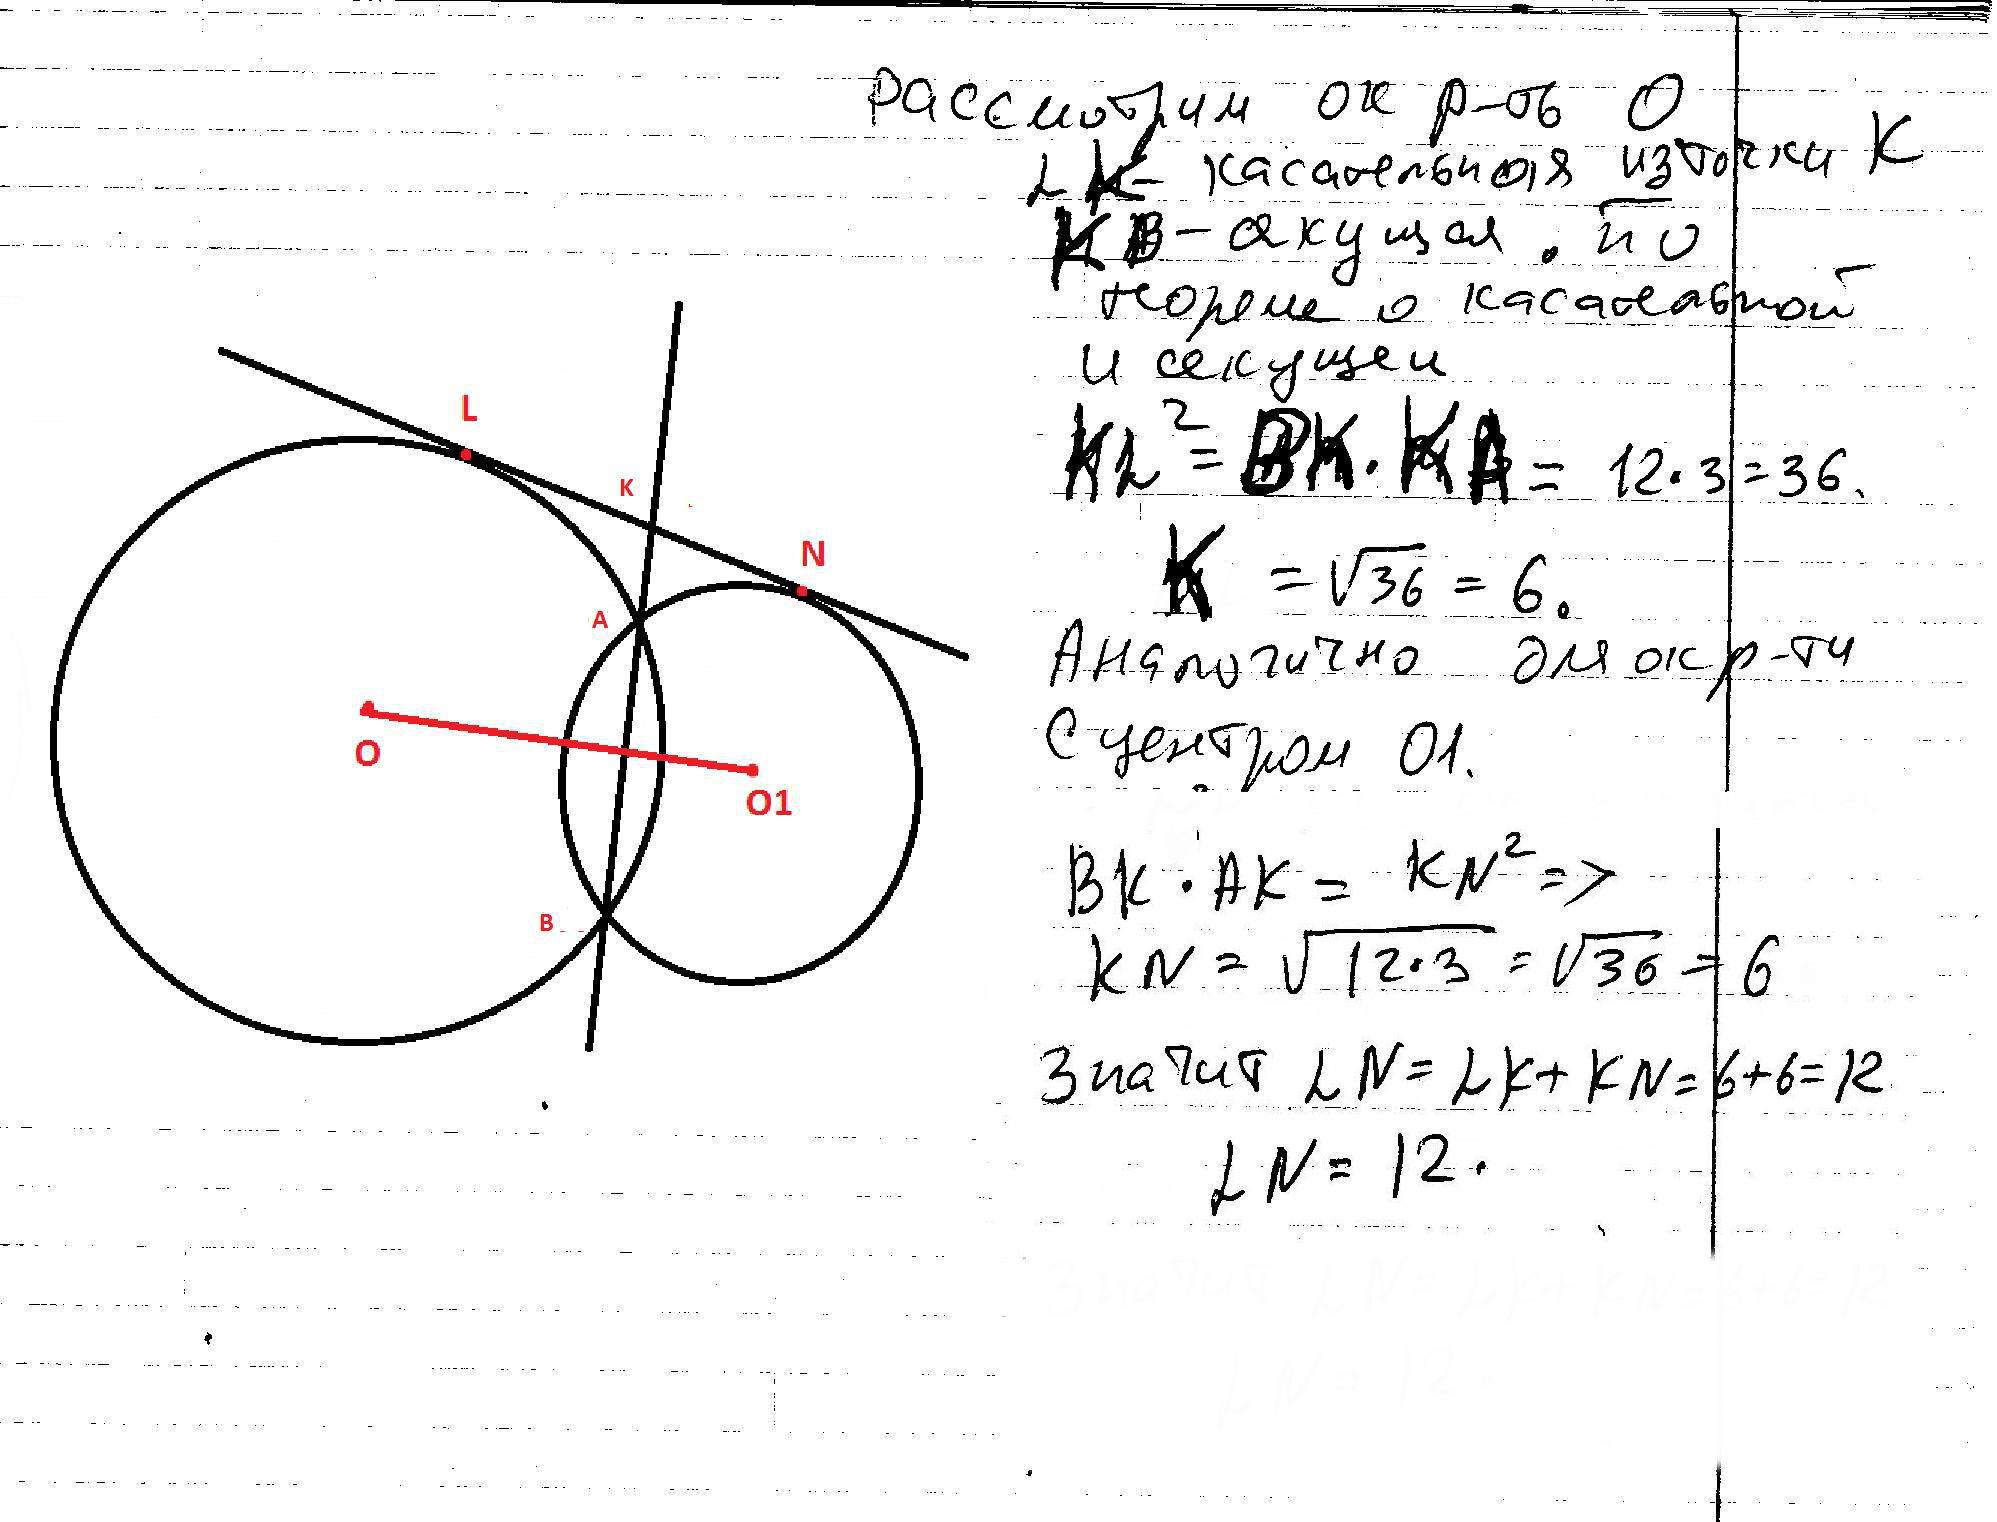 Рассмотрим окр-ть O
LK - касательная из точки K
KB - секущая. по
теореме о касательной
и секущей
KL² = BK · KA = 12·3 = 36.
K = √36 = 6.
Аналогично для окр-ти
с центром O1.
BK · AK = KN² =>
KN = √12·3 = √36 = 6
Значит LN = LK + KN = 6+6=12
LN = 12.
L
K
N
A
O
O1
B